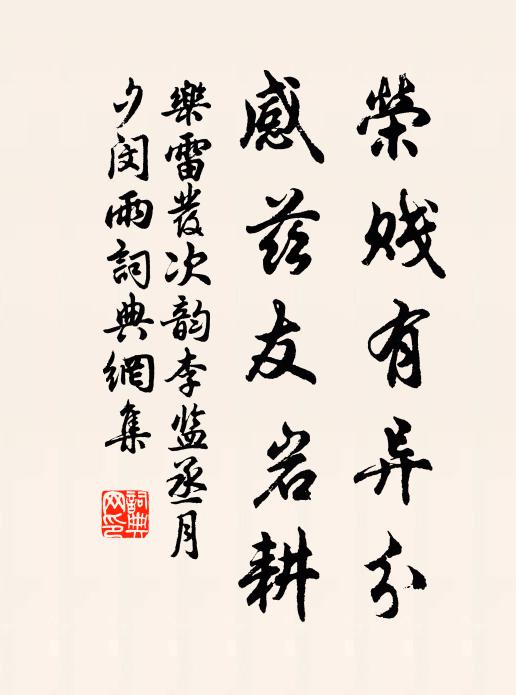 榮賤有异分
感茲友岩耕
樂雷發次韵李监丞月
夕閔雨詞典網集
詞典網印